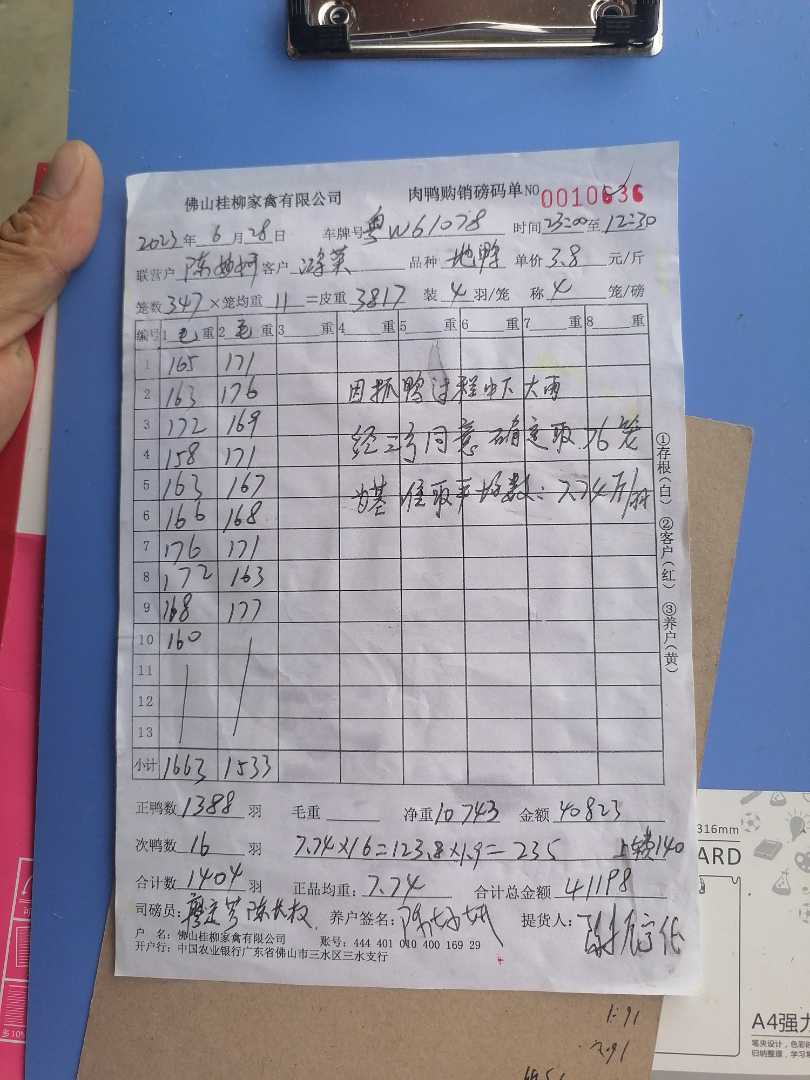 佛山桂柳家禽有限公司 肉鸭购销磅码单 NO 0010636
2023年 6 月 28 日 车牌号 粤W61078 时间 23:00 至 12:30
联营户 陈 客户 品种 地鸭 单价 3.8 元/斤
笼数 347 × 笼均重 11 = 皮重 3817 装 4 羽/笼 称 4 笼/磅
编号 1 毛 重 2 毛 重 3 重 4 重 5 重 6 重 7 重 8 重
1 165 171
2 163 176 因抓鸭过程中下大雨
3 172 169
4 158 171 经三方同意确定取76笼
5 163 167
6 166 168 为基准取平均数:7.74斤/羽
7 176 171
8 172 163
9 168 177
10 160
11
12
13
小计 1663 1533
①存根(白) ②客户(红) ③养户(黄)
正鸭数 1388 羽 毛重 净重 10743 金额 40823
次鸭数 16 羽 7.74×16=123.8×1.9=235 140
合计数 1404 羽 正品均重: 7.74 合计总金额 41198
司磅员: 养户签名: 陈 提货人:
户 名: 佛山桂柳家禽有限公司 账号: 444 401 010 400 169 29
开户行: 中国农业银行广东省佛山市三水区三水支行
316mm
ARD
A4强力
笔夹设计,色彩
归纳整理,学习
1.91
2.91
多10%